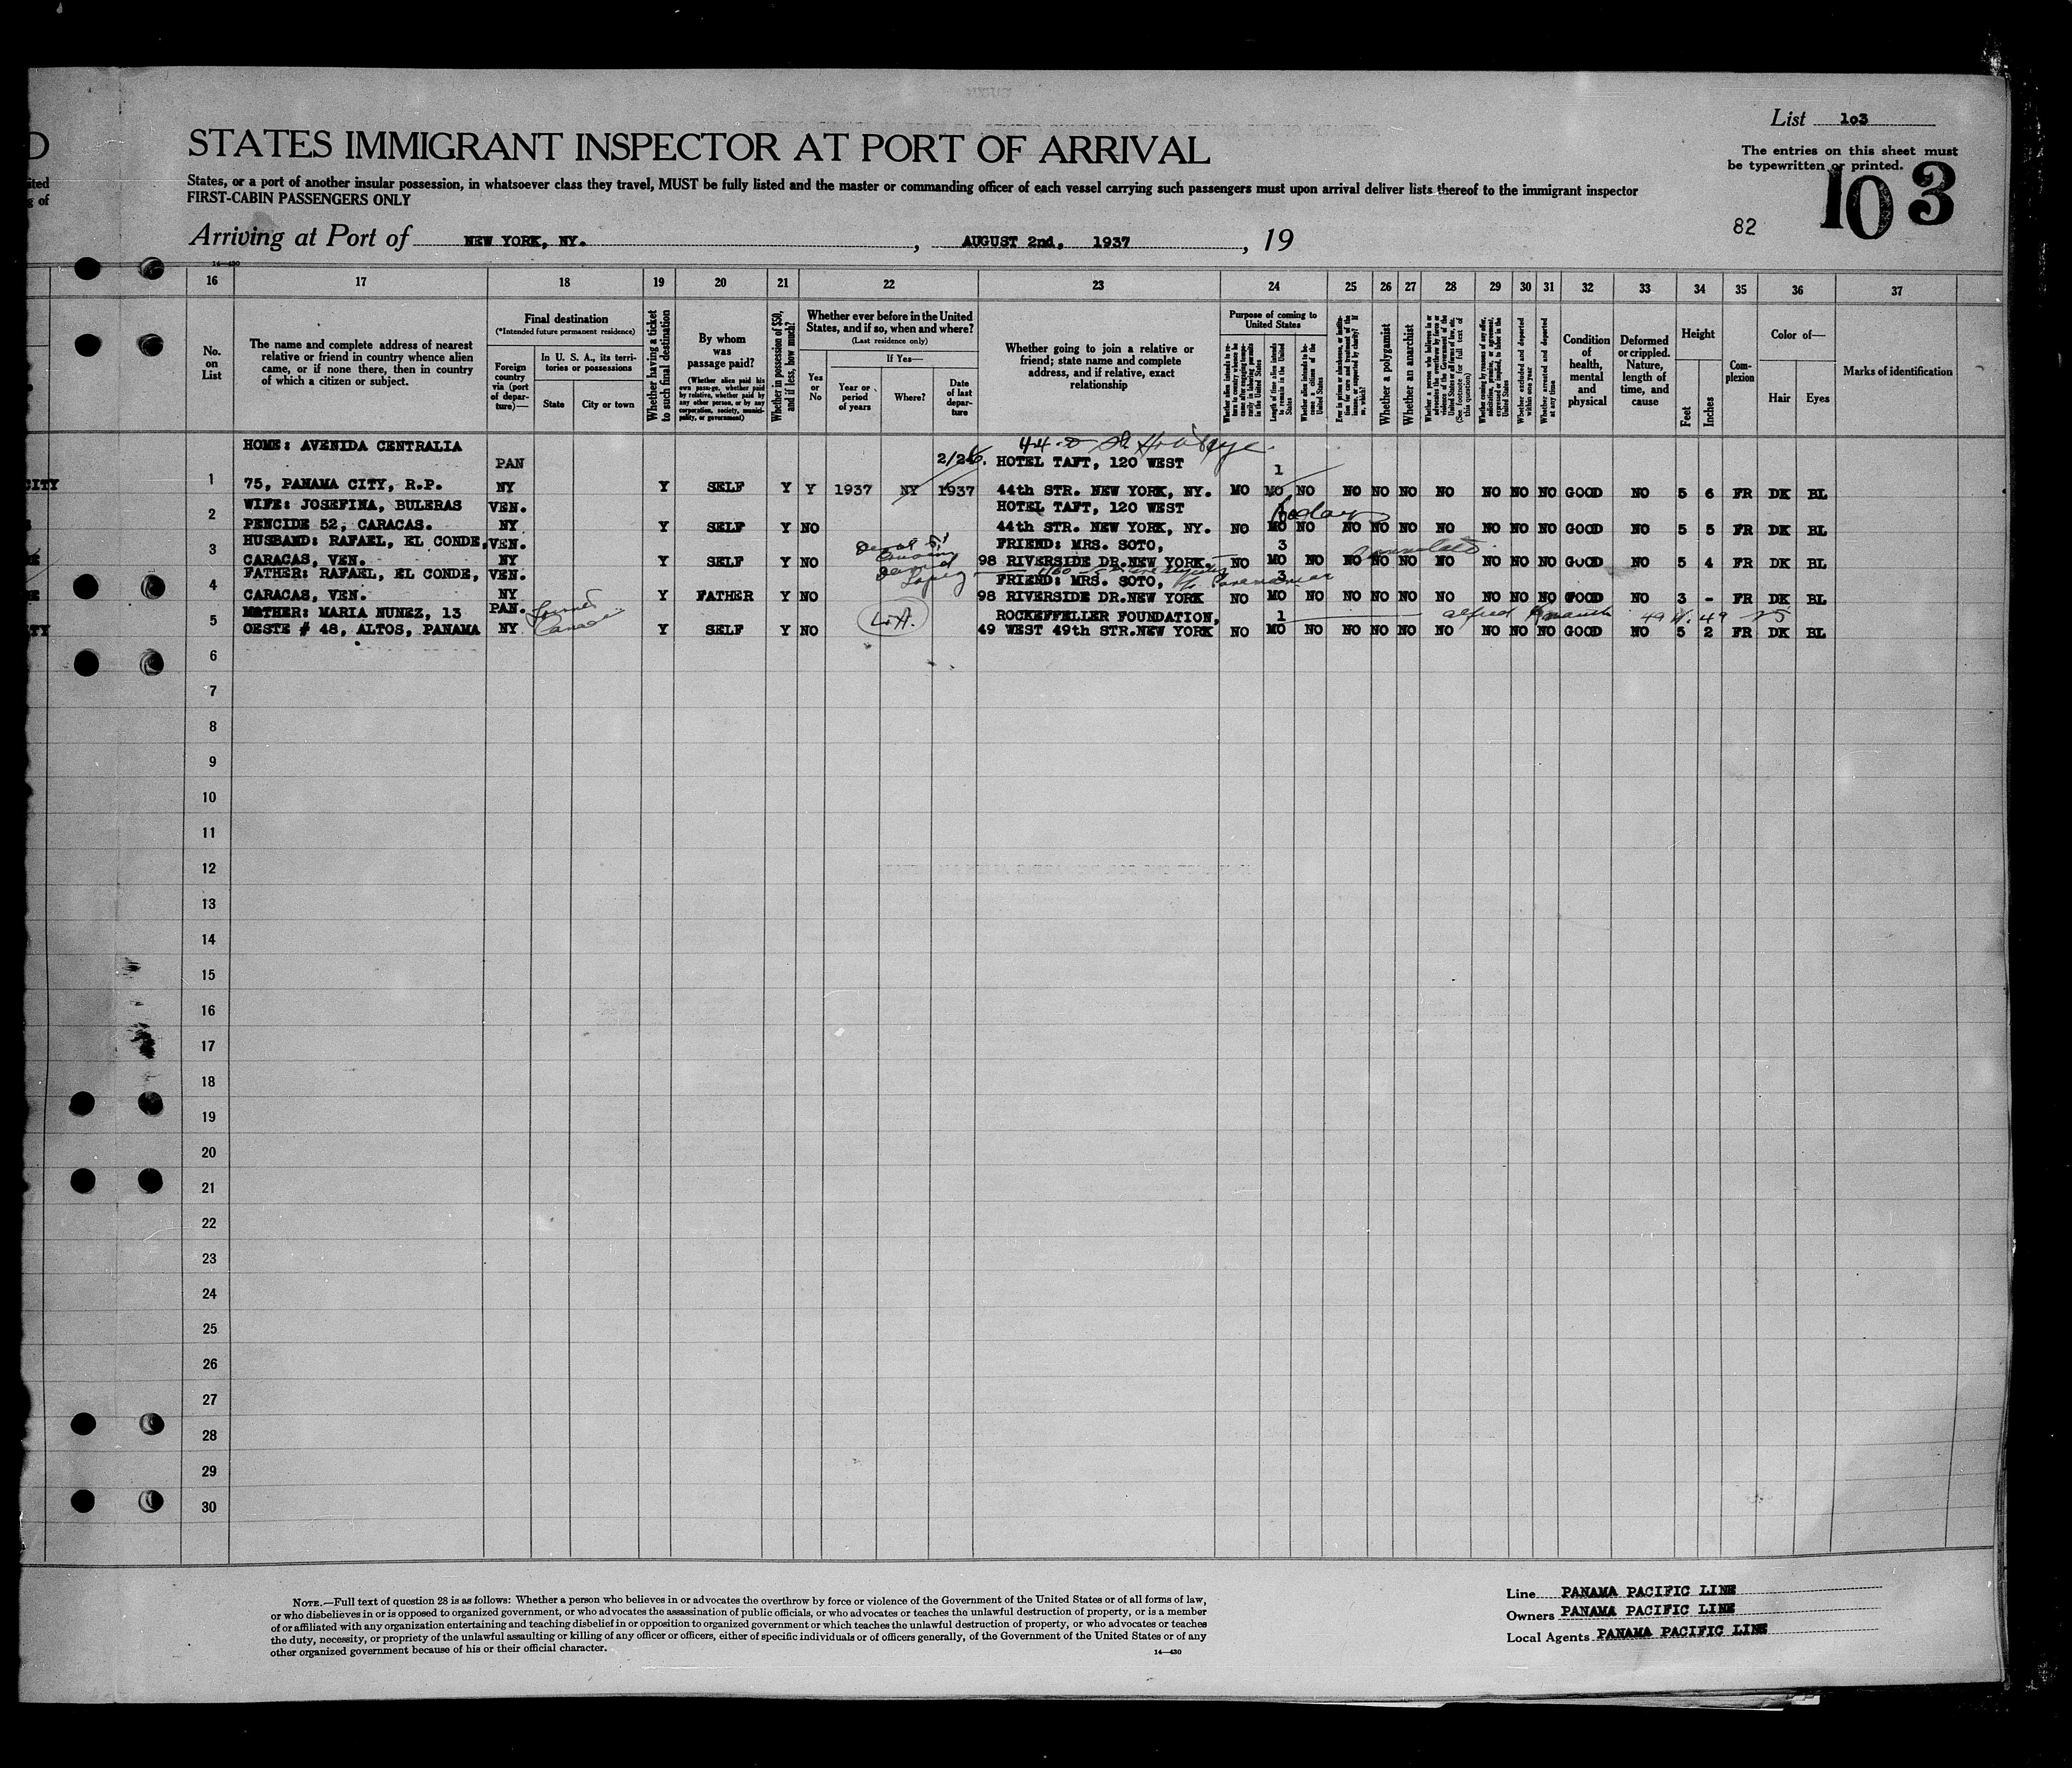 List 103
The entries on this sheet must
be typewritten or printed.
103
82
STATES IMMIGRANT INSPECTOR AT PORT OF ARRIVAL
States, or a port of another insular possession, in whatsoever class they travel, MUST be fully listed and the master or commanding officer of each vessel carrying such passengers must upon arrival deliver lists thereof to the immigrant inspector
FIRST-CABIN PASSENGERS ONLY
Arriving at Port of NEW YORK, NY. , AUGUST 2nd, 1937 , 19
14—430
16 17 18 19 20 21 22 23 24 25 26 27 28 29 30 31 32 33 34 35 36 37
No. on List
The name and complete address of nearest relative or friend in country whence alien came, or if none there, then in country of which a citizen or subject.
Final destination
(*Intended future permanent residence)
Foreign country via (port of departure)—
In U. S. A., its territories or possessions
State
City or town
Whether having a ticket to such final destination
By whom was passage paid?
(Whether alien paid his own passage, whether paid by relative, whether paid by any other person, or by any corporation, society, municipality, or government)
Whether in possession of $50, and if less, how much?
Whether ever before in the United States, and if so, when and where?
(Last residence only)
Yes or No
If Yes—
Year or period of years
Where?
Date of last departure
Whether going to join a relative or friend; state name and complete address, and if relative, exact relationship
Purpose of coming to United States
Length of time alien intends to remain in the United States
Whether alien intends to become a citizen of the United States
Whether a polygamist
Whether an anarchist
Whether excluded and deported within one year
Whether arrested and deported at any time
Condition of health, mental and physical
Deformed or crippled. Nature, length of time, and cause
Height
Feet
Inches
Complexion
Color of—
Hair
Eyes
Marks of identification
HOME: AVENIDA CENTRALIA PAN 2/26. HOTEL TAFT, 120 WEST 1
CITY 1 75, PANAMA CITY, R.P. NY Y SELF Y Y 1937 NY 1937 44th STR. NEW YORK, NY. MO MO NO NO NO NO NO NO NO NO GOOD NO 5 6 FR DK BL
WIFE: JOSEFINA, BULERAS VEN. HOTEL TAFT, 120 WEST
2 PENCIDE 52, CARACAS. NY Y SELF Y NO 44th STR. NEW YORK, NY. NO MO NO NO NO NO NO NO NO NO GOOD NO 5 5 FR DK BL
HUSBAND: RAFAEL, EL CONDE, VEN. FRIEND: MRS. SOTO, 3
3 CARACAS, VEN. NY Y SELF Y NO 98 RIVERSIDE DR.NEW YORK. NO MO NO NO NO NO NO NO NO NO GOOD NO 5 4 FR DK BL
FATHER: RAFAEL, EL CONDE, VEN. Lopez FRIEND: MRS. SOTO, 3
4 CARACAS, VEN. NY Y FATHER Y NO 98 RIVERSIDE DR.NEW YORK NO MO NO NO NO NO NO NO NO NO GOOD NO 3 - FR DK BL
MOTHER: MARIA NUNEZ, 13 PAN. ROCKEFFELLER FOUNDATION, 1
5 OESTE # 48, ALTOS, PANAMA NY Y SELF Y NO 49 WEST 49th STR.NEW YORK NO MO NO NO NO NO NO NO NO NO GOOD NO 5 2 FR DK BL
6
7
8
9
10
11
12
13
14
15
16
17
18
19
20
21
22
23
24
25
26
27
28
29
30
NOTE.—Full text of question 28 is as follows: Whether a person who believes in or advocates the overthrow by force or violence of the Government of the United States or of all forms of law,
or who disbelieves in or is opposed to organized government, or who advocates the assassination of public officials, or who advocates or teaches the unlawful destruction of property, or is a member
of or affiliated with any organization entertaining and teaching disbelief in or opposition to organized government or which teaches the unlawful destruction of property, or who advocates or teaches
the duty, necessity, or propriety of the unlawful assaulting or killing of any officer or officers, either of specific individuals or of officers generally, of the Government of the United States or of any
other organized government because of his or their official character.
14—430
Line PANAMA PACIFIC LINE
Owners PANAMA PACIFIC LINE
Local Agents PANAMA PACIFIC LINE